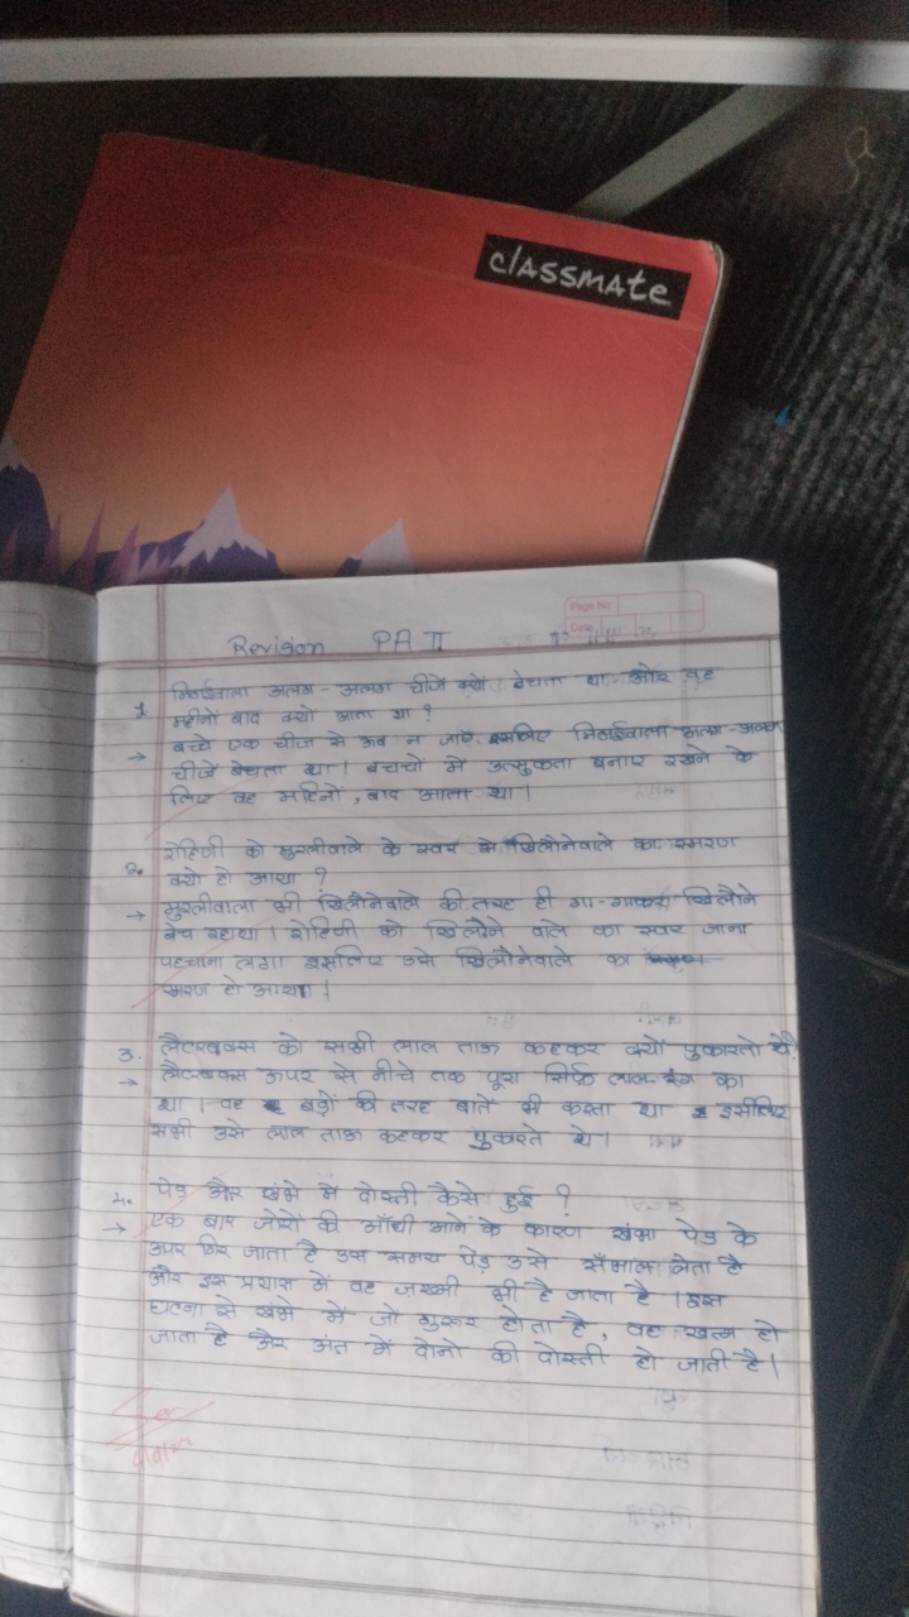 classmate
Page No.
Date
Revision PA II
1. मिठाईवाला अलग-अलग चीजें क्यों बेचता था और वह
महीनों बाद क्यों आता था?
→ बच्चे एक चीज से ऊब न जाएं इसलिए मिठाईवाला अलग-अलग
चीजें बेचता था। बच्चों में उत्सुकता बनाए रखने के
लिए वह महिनों, बाद आता था।
2. रोहिणी को मुरलीवाले के स्वर से खिलौनेवाले का स्मरण
क्यों हो आया?
→ मुरलीवाला भी खिलौनेवाले की तरह ही गा-गाकर खिलौने
बेच रहाथा। रोहिणी को खिलौने वाले का स्वर जाना
पहचाना लगा इसलिए उसे खिलौनेवाले का
स्मरण हो आया।
3. लैटरबक्स को सभी लाल ताऊ कहकर क्यों पुकारते थे?
→ लैटरबक्स ऊपर से नीचे तक पूरा सिर्फ लाल रंग का
था। वह बड़ों की तरह बातें भी करता था इसीलिए
सभी उसे लाल ताऊ कहकर पुकारते थे।
4. पेड़ और खंभे में दोस्ती कैसे हुई?
→ एक बार जोरों की आँधी आने के कारण खंभा पेड़ के
ऊपर गिर जाता है उस समय पेड़ उसे सँभाल लेता है
और इस प्रयास में वह ज़ख्मी भी है जाता है। इस
घटना से खंभे में जो गुरूर होता है, वह खत्म हो
जाता है और अंत में दोनो की दोस्ती हो जाती है।